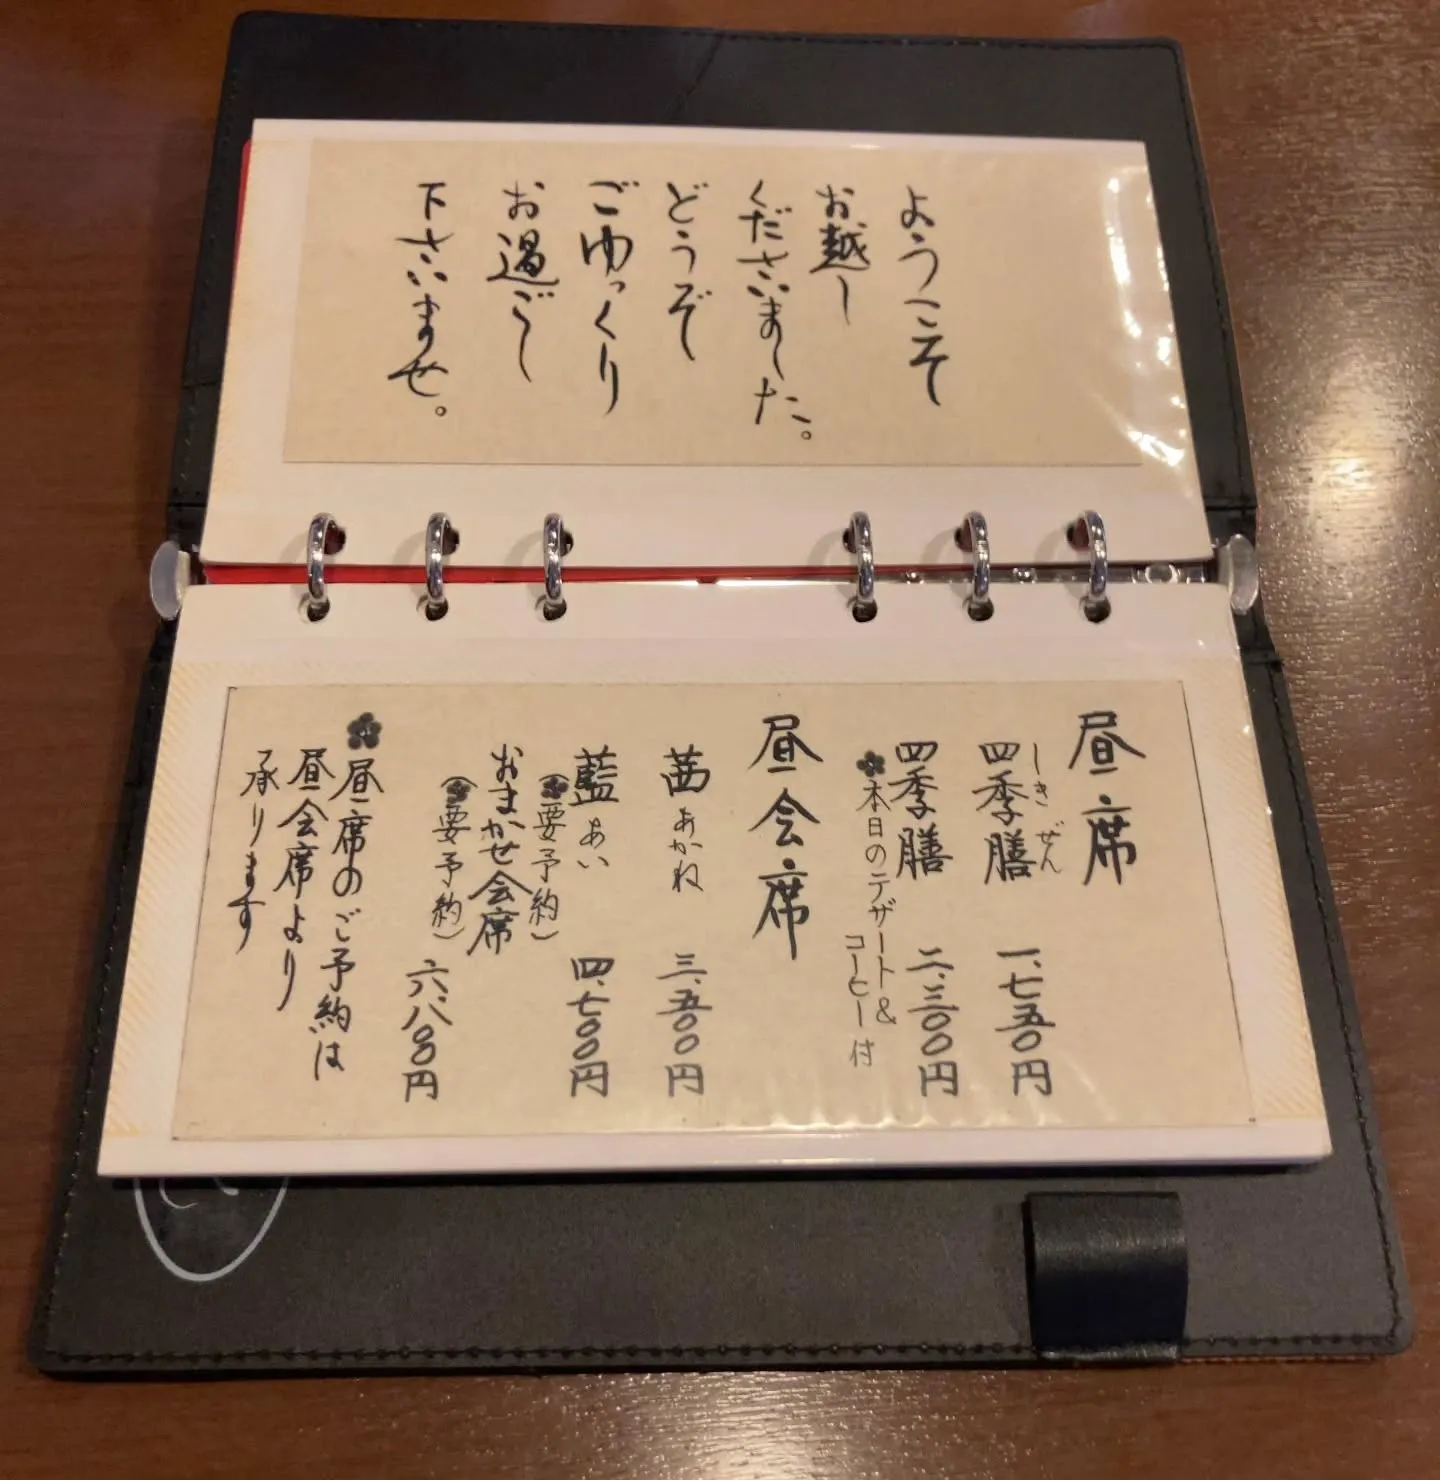 ようこそ
お越し
くださいました。
どうぞ
ごゆっくり
お過ごし
下さいませ。
昼席
しきぜん
四季膳 一、七五〇円
四季膳 二、三〇〇円
本日のデザート&
コーヒー付
昼会席
茜 あかね 三、五〇〇円
藍 あい 四、七〇〇円
(要予約)
おまかせ会席
(要予約) 六、八〇〇円
昼席のご予約は
昼会席より
承ります